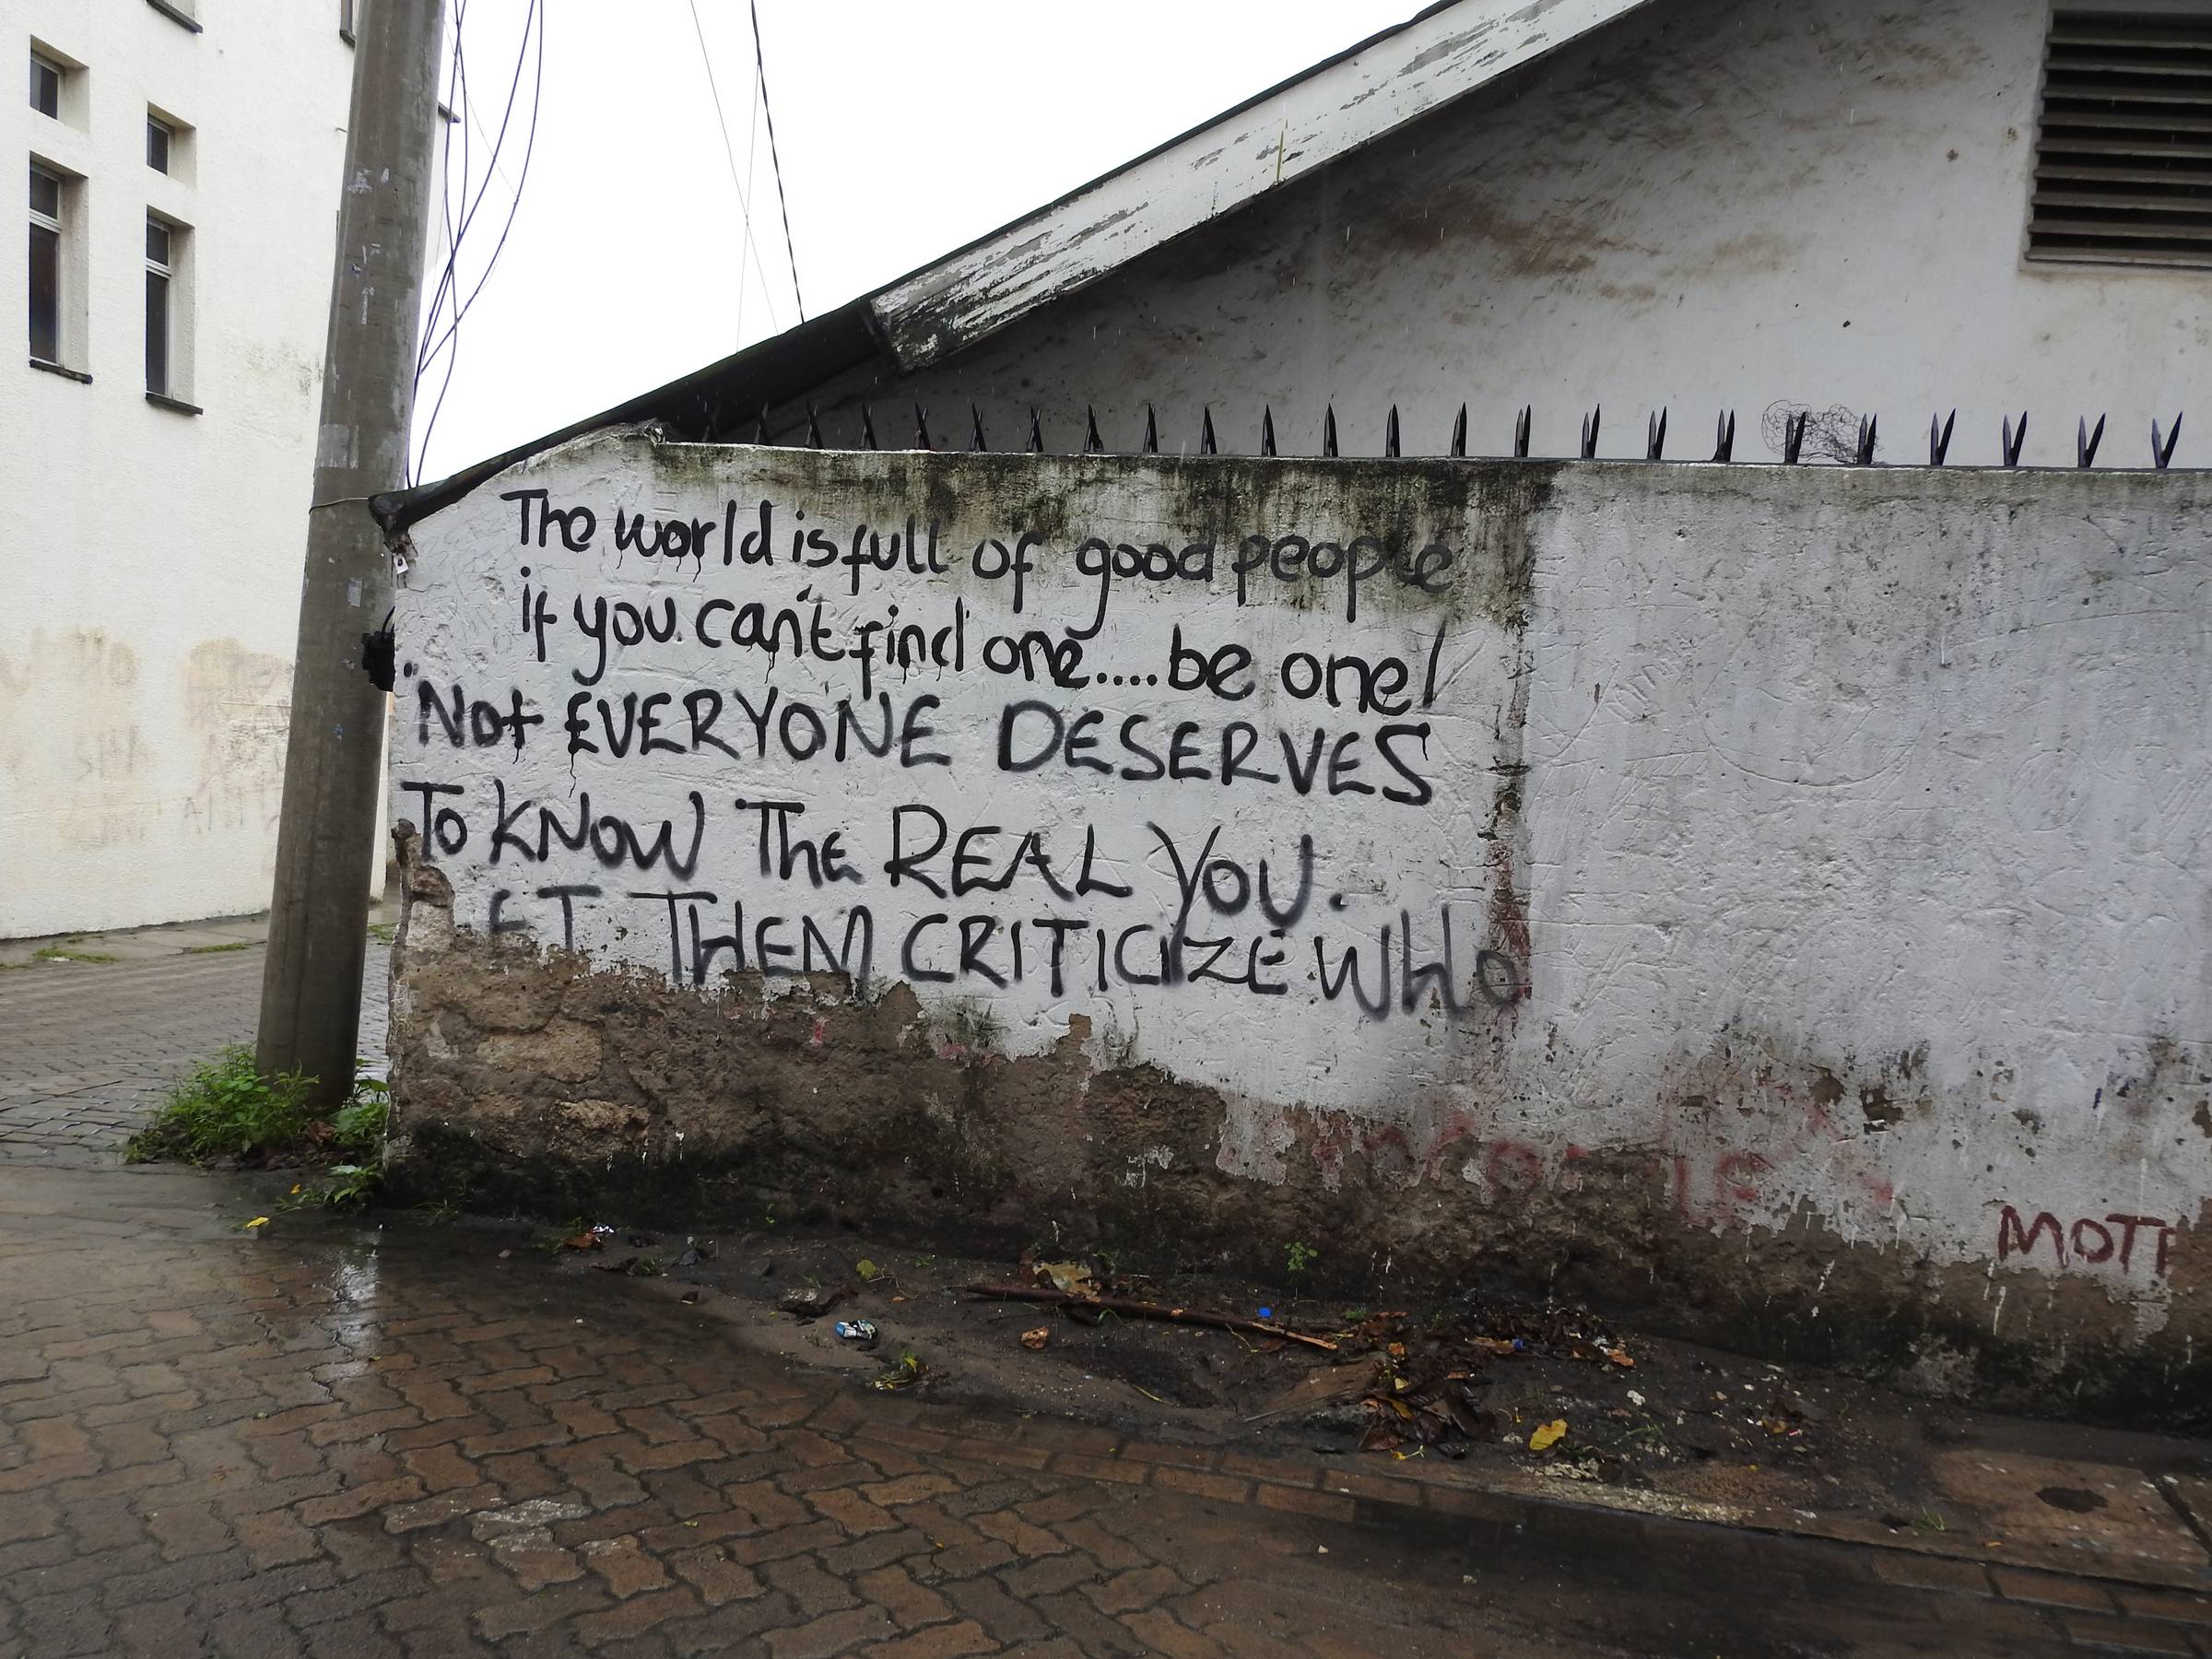 The world is full of good people
if you can't find one....be one!
"Not EVERYONE DESERVES
To KNOW The REAL YOU.
ET THEM CRITICIZE WHO
MOTI